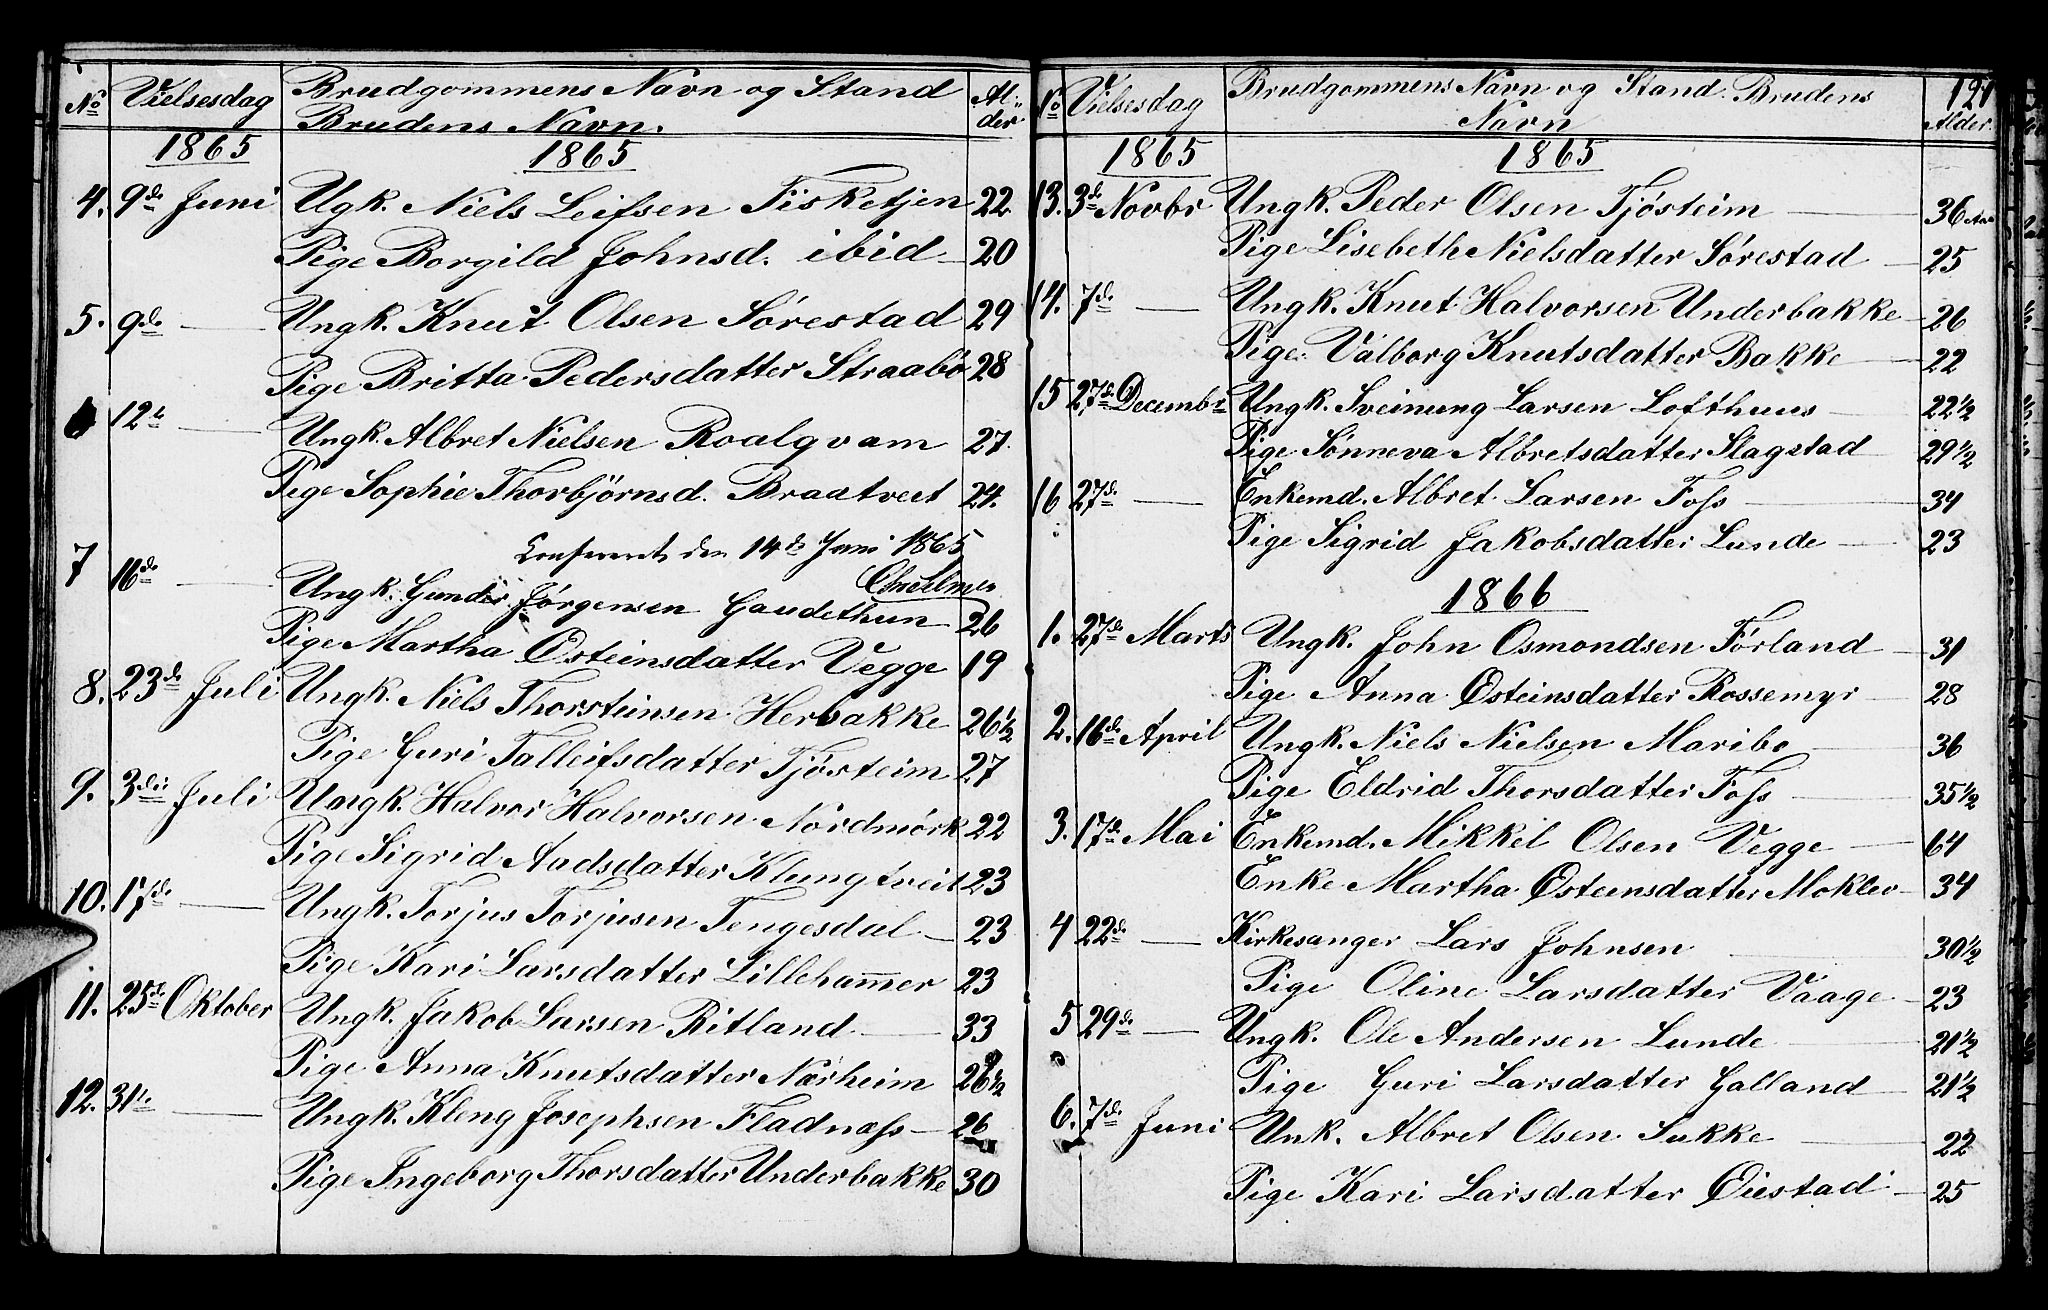 No Vielsesdag Brudgommens Navn og Stand Al-
Brudens Navn. der
1865 1865
4. 9de Juni Ugk. Niels Leifsen Fisketjen 22
Pige Borgild Johnsd. ibid 20
5. 9de — Ungk. Knut Olsen Sørestad 29
Pige Britta Pedersdatter Straabø 28
12te — Ungk. Albret Nielsen Roalqvam 27.
Pige Sophie Thorbjörnsd. Braatveit 24.
Confereret den 14de Juni 1865
7 16de — Ungk. Gunder Jørgensen Gaudethun 26
Pige Martha Østeinsdatter Vegge 19
8. 23de Juli Ungk. Niels Thorsteinsen Herbakke 26½
Pige Guri Talleifsdatter Tjøsteim 27
9. 3die Juli Ungk. Halvor Halvorsen Nordmørk 22
Pige Sigrid Aadsdatter Klungtveit 23
10. 17de — Ungk. Torjus Torjusen Tengesdal — 23
Pige Kari Larsdatter Lillehammer 23
11. 25de Oktober Ungk. Jakob Larsen Ritland — 33
Pige Anna Knutsdatter Nærheim 26½
12. 31te — Ungk. Kleng Josephsen Fladnæss — 26
Pige Ingeborg Thorsdatter Underbakke 30
No Vielsesdag Brudgommens Navn og Stand. Brudens 121
Navn Alder.
1865 1865
13. 3de Novbr Ungk. Peder Olsen Tjøsteim — 36 Aar
Pige Lisebeth Nielsdatter Sørestad — 25
14. 7de — Ungk. Knut Halvorsen Underbakke — 26
Pige Valborg Knutsdatter Bakke — 22
15 27de Decembr Ungk. Sveinung Larsen Lofthuus — 22½
Pige Sønneva Albretsdatter Slagstad 29½
16 27de — Enkemd. Albret Larsen Foss — 34
Pige Sigrid Jakobsdatter Lunde — 23
1866
1. 27de Marts Ungk. John Osmondsen Førland — 31
Pige Anna Østeinsdatter Rossemyr — 28
2. 16de April Ungk. Niels Nielsen Maribo — 36
Pige Eldrid Thorsdatter Foss — 35½
3. 17de Mai Enkemd. Mikkel Olsen Vegge — 64
Enke Martha Østeinsdatter Moklev — 34
4 22de — Kirkesanger Lars Johnsen — 30½
Pige Oline Larsdatter Vaage — 23
5 29de — Ungk. Ole Andersen Lunde — 21½
Pige Guri Larsdatter Galland — 21½
6. 7de Juni Unk. Albret Olsen Sukke — 22
Pige Kari Larsdatter Øiestad — 25